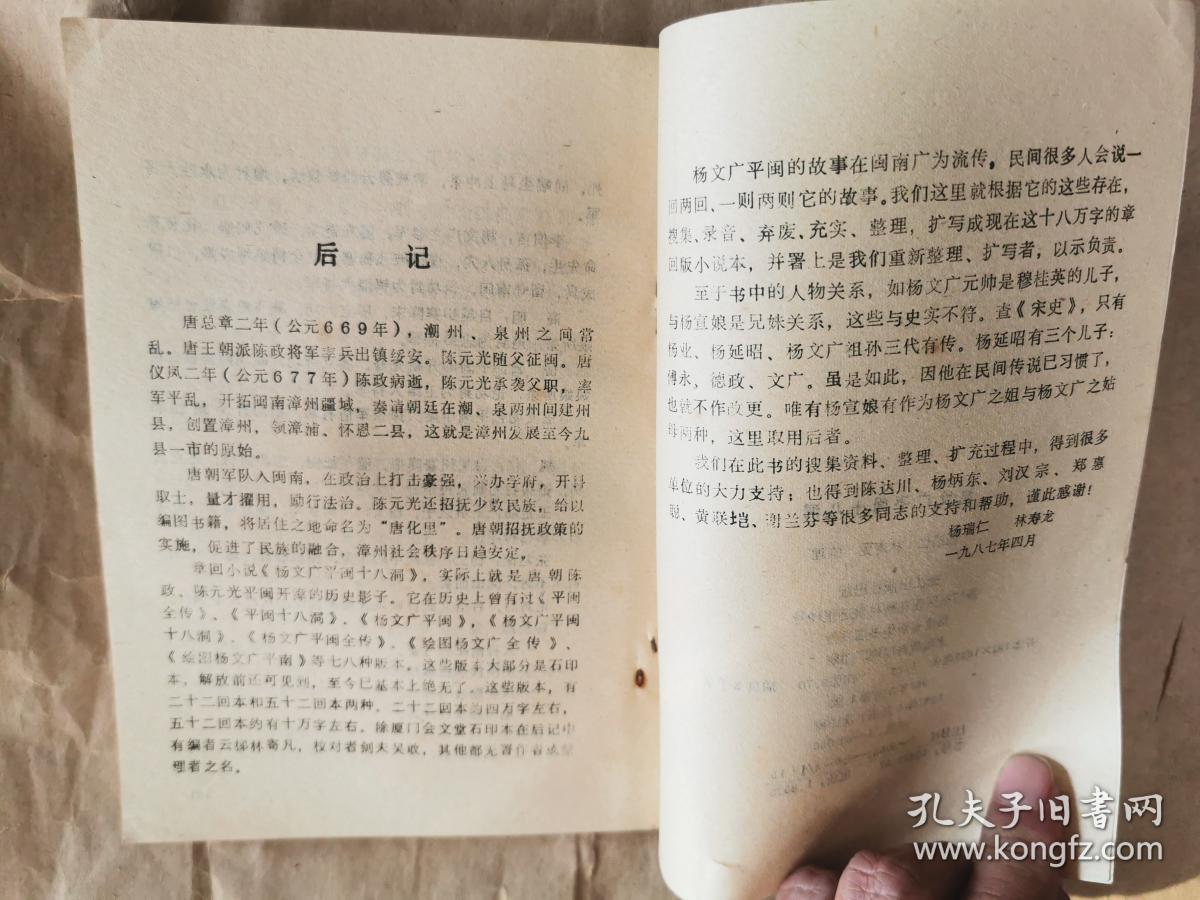 后 记
唐总章二年（公元669年），潮州、泉州之间常
乱。唐王朝派陈政将军率兵出镇绥安。陈元光随父征闽。唐
仪凤二年（公元677年）陈政病逝，陈元光承袭父职，率
军平乱，开拓闽南漳州疆域，奏请朝廷在潮、泉两州间建州
县，创置漳州，领漳浦、怀恩二县，这就是漳州发展至今九
县一市的原始。
唐朝军队入闽南，在政治上打击豪强，兴办学府，开科
取士，量才擢用，励行法治。陈元光还招抚少数民族，给以
编图书籍，将居住之地命名为“唐化里”。唐朝招抚政策的
实施，促进了民族的融合，漳州社会秩序日趋安定，
章回小说《杨文广平闽十八洞》，实际上就是唐朝陈
政、陈元光平闽开漳的历史影子。它在历史上曾有过《平闽
全传》、《平闽十八洞》、《杨文广平闽》，《杨文广平闽
十八洞》、《杨文广平闽全传》、《绘图杨文广全传》、
《绘图杨文广平南》等七八种版本。这些版本大部分是石印
本，解放前还可见到，至今已基本上绝无了。这些版本，有
二十二回本和五十二回本两种。二十二回本约四万字左右，
五十二回本约有十万字左右。除厦门会文堂石印本在后记中
有编者云梯林寄凡，校对者剑夫吴敢，其他都无署作者或整
理者之名。
杨文广平闽的故事在闽南广为流传，民间很多人会说一
回两回、一则两则它的故事。我们这里就根据它的这些存在，
搜集、录音、弃废、充实、整理，扩写成现在这十八万字的章
回版小说本，并署上是我们重新整理、扩写者，以示负责。
至于书中的人物关系，如杨文广元帅是穆桂英的儿子，
与杨宣娘是兄妹关系，这些与史实不符。查《宋史》，只有
杨业、杨延昭、杨文广祖孙三代有传。杨延昭有三个儿子：
傅永，德政、文广。虽是如此，因他在民间传说已习惯了，
也就不作改更。唯有杨宣娘有作为杨文广之姐与杨文广之姑
母两种，这里取用后者。
我们在此书的搜集资料、整理、扩充过程中，得到很多
单位的大力支持；也得到陈达川、杨炳东、刘汉宗、郑惠
聪、黄联垲、谢兰芬等很多同志的支持和帮助，谨此感谢！
杨瑞仁 林寿龙
一九八七年四月
孔夫子旧书网
www.kongfz.com